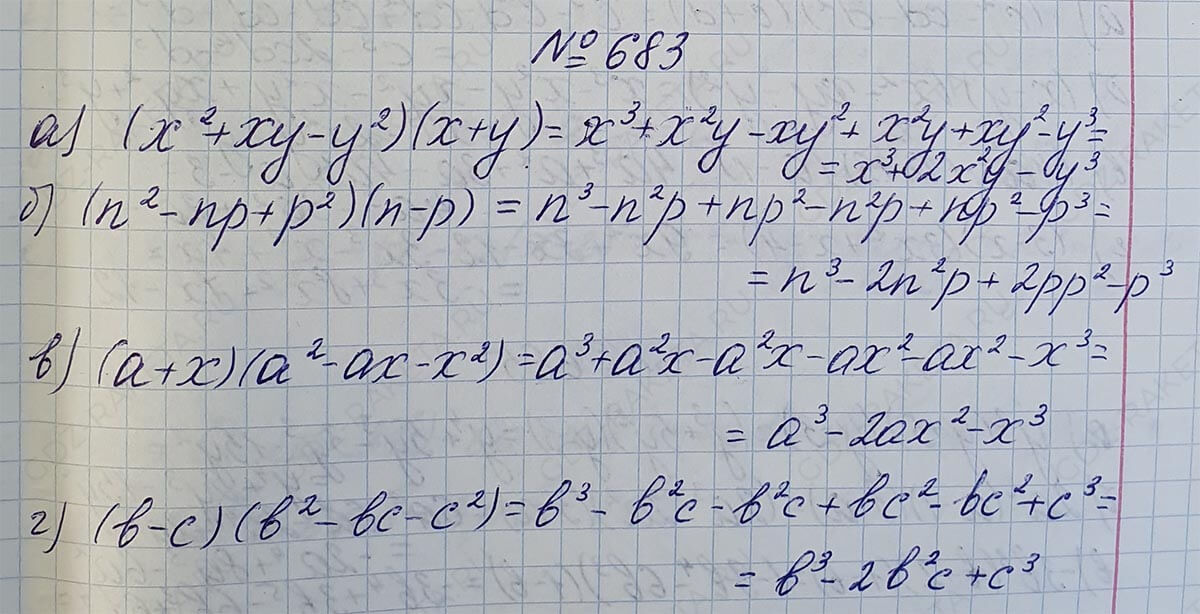 № 683
а) (x²+xy-y²)(x+y)=x³+x²y-xy²+x²y+xy²-y³=
=x³+2x²y-y³
б) (n²-np+p²)(n-p)=n³-n²p+np²-n²p+np²-p³=
=n³-2n²p+2pp²-p³
в) (a+x)(a²-ax-x²)=a³+a²x-a²x-ax²-ax²-x³=
=a³-2ax²-x³
г) (b-c)(b²-bc-c²)=b³-b²c-b²c+bc²-bc²+c³=
=b³-2b²c+c³